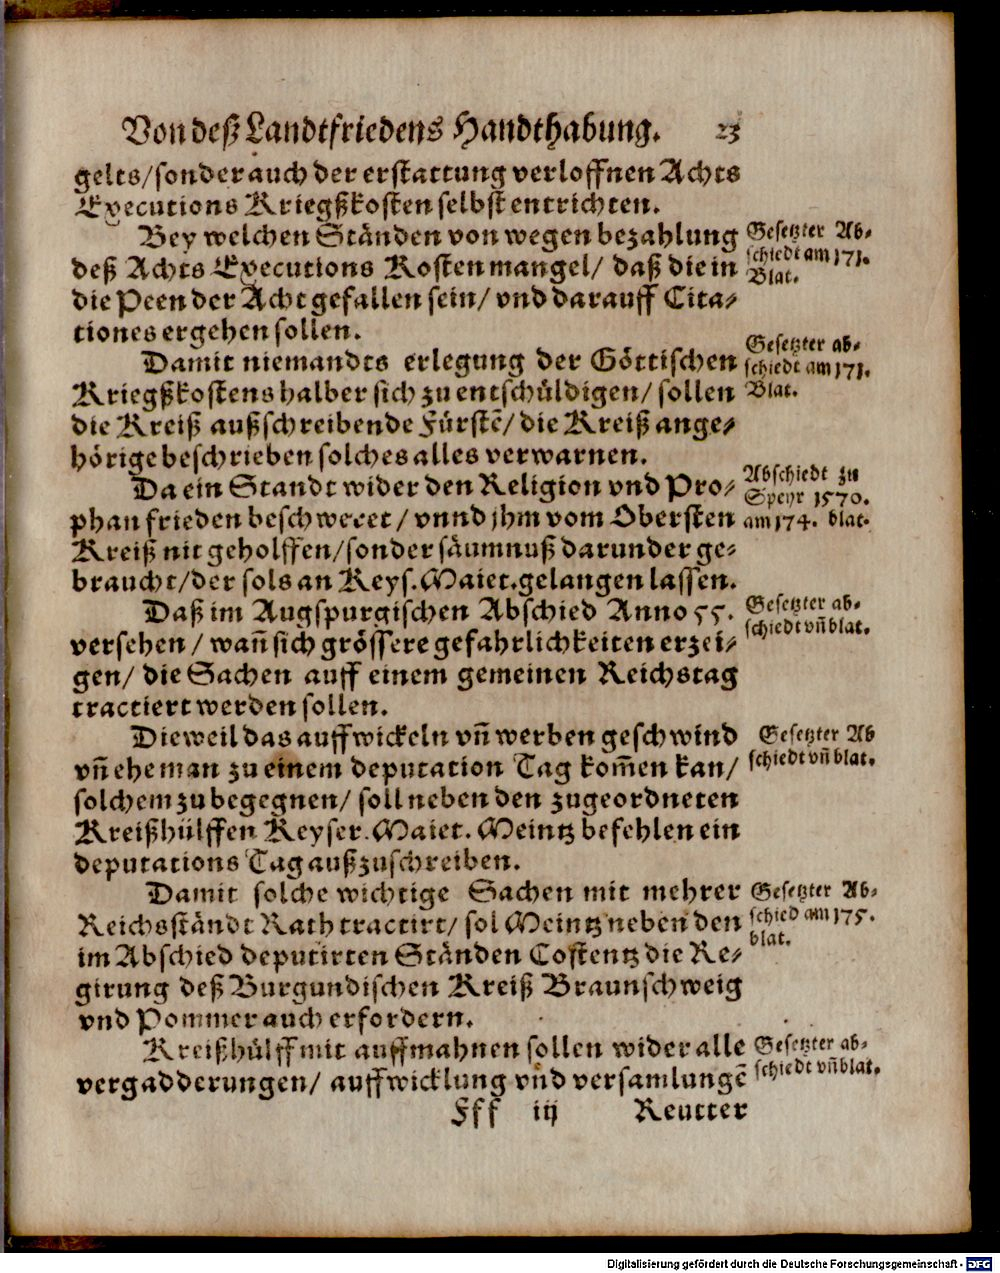 Von deß Landtfriedens Handthabung. 23
gelts/sonder auch der erstattung verloffnen Achts
Executions Kriegßkosten selbst entrichten.
Bey welchen Ständen von wegen bezahlung
deß Achts Executions Kosten mangel/ daß die in
die Peen der Acht gefallen sein/ vnd darauff Cita-
tiones ergehen sollen.
Gesetzter Ab-
schiedt am 171.
Blat.
Damit niemandts erlegung der Göttischen
Kriegßkostens halber sich zu entschüldigen/ sollen
die Kreiß außschreibende Fürstē/ die Kreiß ange-
hörige beschrieben solches alles verwarnen.
Gesetzter ab-
schiedt am 171.
Blat.
Da ein Standt wider den Religion vnd Pro-
phan frieden beschweret/ vnnd jhm vom Obersten
Kreiß nit geholffen/sonder säumnuß darunder ge-
braucht/der sols an Keys. Maiet. gelangen lassen.
Abschiedt zu
Speyr 1570.
am 174. blat.
Daß im Augspurgischen Abschied Anno 55.
versehen/ wañ sich grössere gefahrlichkeiten erzei-
gen/ die Sachen auff einem gemeinen Reichstag
tractiert werden sollen.
Gesetzter ab-
schiedt vñ blat.
Dieweil das auffwickeln vñ werben geschwind
vñ ehe man zu einem deputation Tag kom̃en kan/
solchem zu begegnen/ soll neben den zugeordneten
Kreißhülffen Keyser. Maiet. Meintz befehlen ein
deputations Tag außzuschreiben.
Gesetzter Ab
schiedt vñ blat.
Damit solche wichtige Sachen mit mehrer
Reichsständt Rath tractirt/ sol Meintz neben den
im Abschied deputirten Ständen Costentz die Re-
girung deß Burgundischen Kreiß Braunschweig
vnd Pommer auch erfordern.
Gesetzter Ab-
schied am 175.
blat.
Kreißhülff mit auffmahnen sollen wider alle
vergadderungen/ auffwicklung vnd versamlungē
Gesetzter ab-
schiedt vñ blat.
Fff iij Reutter
Digitalisierung gefördert durch die Deutsche Forschungsgemeinschaft - DFG